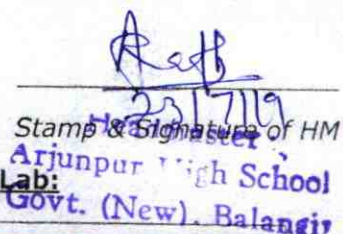 23/7/19
Stamp & Signature of HM
Headmaster
Arjunpur High School
Lab:
Govt. (New), Balangir